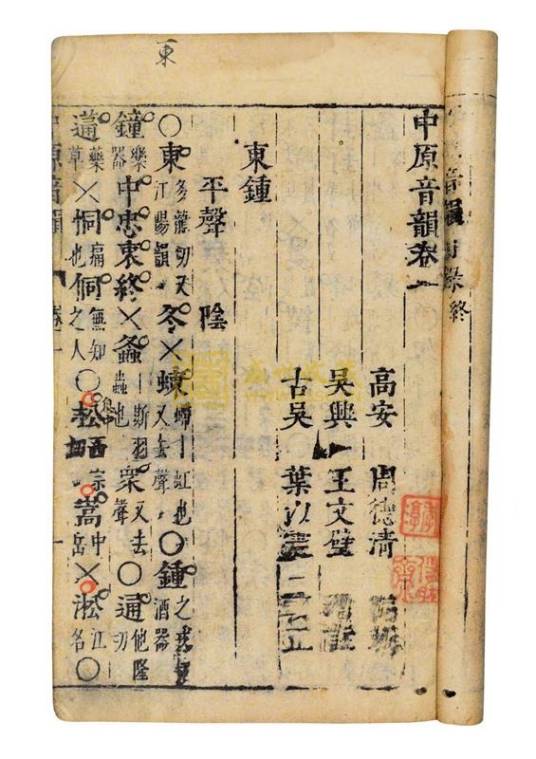 東
音韻附錄終
中原音韻卷一
高安 周德清
吳興 王文璧
古吳 葉
東鍾
平聲 陰
○東多籠切又江陽韻冬×蝀螮丨虹也又去聲○鍾酒器之
鐘樂器中忠衷終×螽斯羽蟲也眾又去聲○通他隆切
蓪藥草×恫痛也侗無知之人○松嵩中岳×淞江名○
中原音韻 卷一 一